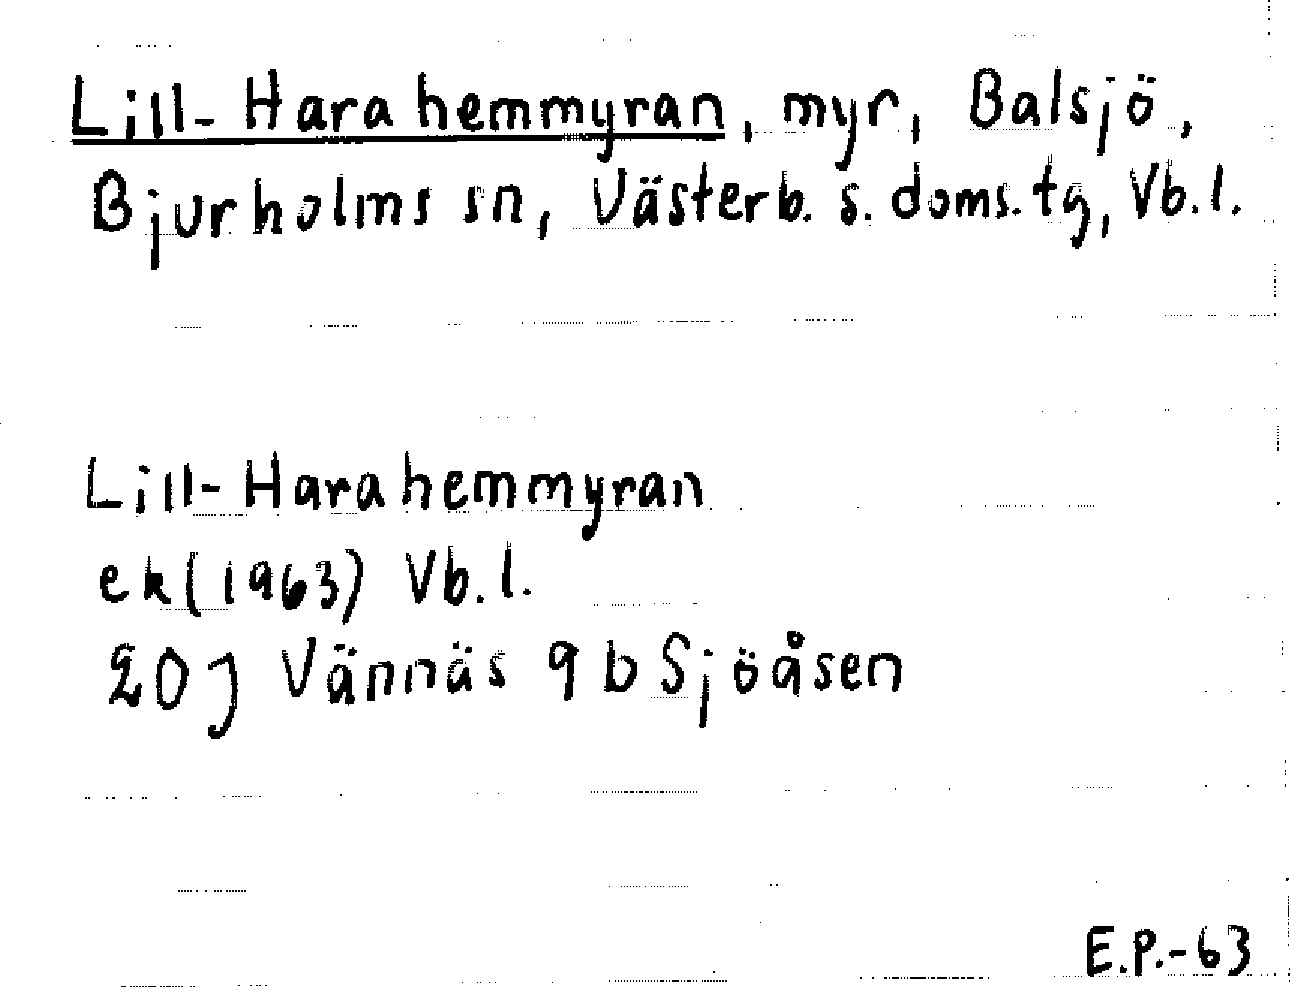 Lill-Harahemmyran, myr, Balsjö,
Bjurholms sn, Västerb. s. doms. tg, Vb. l.
Lill-Harahemmyran
ek (1963) Vb. l.
20 J Vännäs 9 b Sjöåsen
E.P.-63